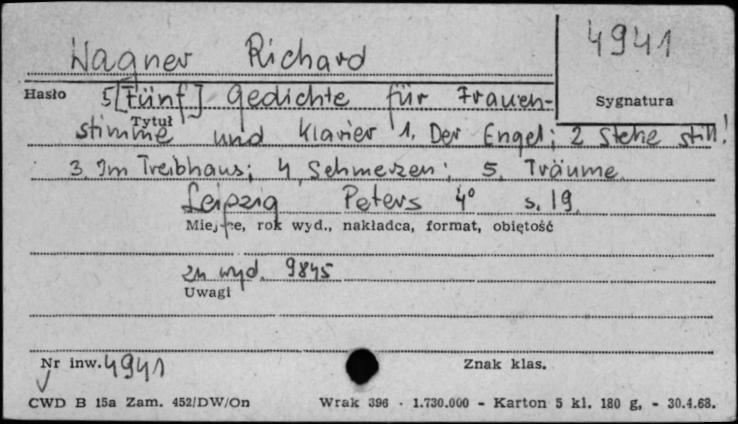 Wagner Richard
4941
Hasło
Sygnatura
5 [Fünf] Gedichte für Frauen-
Tytuł
stimme und Klavier 1. Der Engel; 2 Stehe still!
3. Im Treibhaus; 4. Schmerzen; 5. Träume.
Leipzig Peters 4° s. 19.
Miejsce, rok wyd., nakładca, format, objętość
zn wyd. 9845
Uwagi
Nr inw. 4941
Znak klas.
CWD B 15a Zam. 452/DW/On Wrak 396 · 1.730.000 - Karton 5 kl. 180 g, - 30.4.68.